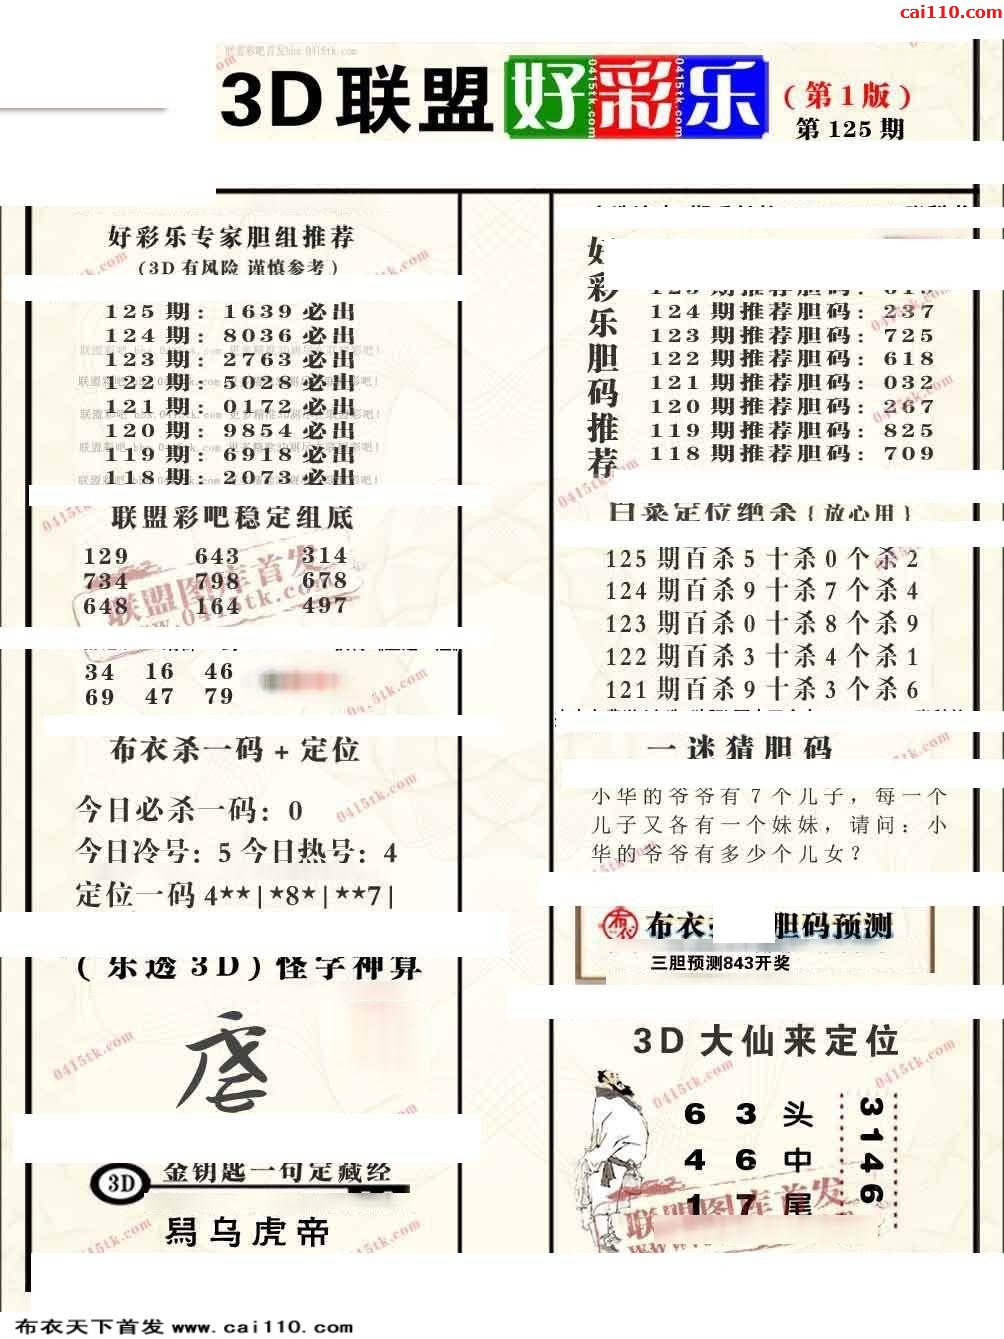 cai110.com
3D联盟好彩乐
(第1版)
第125期
好彩乐专家胆组推荐
(3D有风险 谨慎参考)
125期: 1639必出
124期: 8036必出
123期: 2763必出
122期: 5028必出
121期: 0172必出
120期: 9854必出
119期: 6918必出
118期: 2073必出
联盟彩吧稳定组底
129 643 314
734 798 678
648 164 497
34 16 46
69 47 79
布衣杀一码+定位
今日必杀一码: 0
今日冷号: 5 今日热号: 4
定位一码4**|*8*|**7|
(乐透3D)怪字神算
3D 金钥匙一句定藏经
舄乌虎帝
好彩乐胆码推荐
124期推荐胆码: 237
123期推荐胆码: 725
122期推荐胆码: 618
121期推荐胆码: 032
120期推荐胆码: 267
119期推荐胆码: 825
118期推荐胆码: 709
白菜定位绝杀{放心用}
125期百杀5十杀0个杀2
124期百杀9十杀7个杀4
123期百杀0十杀8个杀9
122期百杀3十杀4个杀1
121期百杀9十杀3个杀6
一迷猜胆码
小华的爷爷有7个儿子，每一个
儿子又各有一个妹妹，请问：小
华的爷爷有多少个儿女？
布衣 胆码预测
三胆预测843开奖
3D大仙来定位
6 3头
4 6中
1 7尾
3146
联盟图库首发
布衣天下首发 www.cai110.com